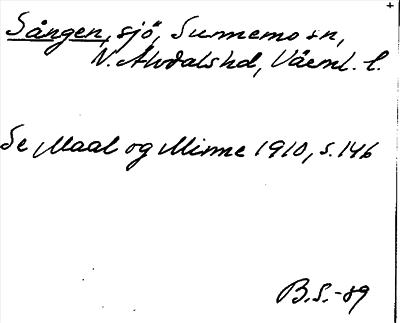 Sången, sjö, Sunnemo sn,
N. Älvdals hd, Värml. l.
Se Maal og Minne 1910, s. 146
B.S.-89